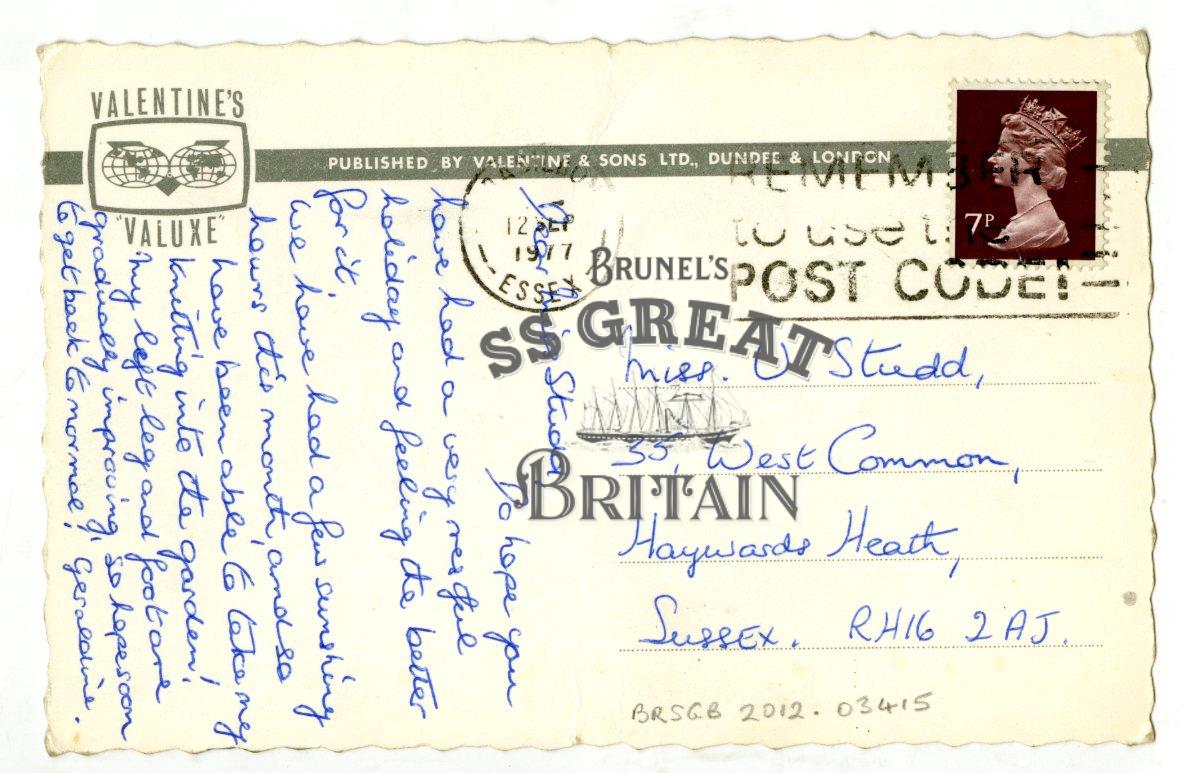 VALENTINE'S
"VALUXE"
PUBLISHED BY VALENTINE & SONS LTD., DUNDEE & LONDON
12 SEP
1977
ESSEX
REMEMBER
to use the
POST CODE!
7P
BRUNEL'S
SS GREAT
BRITAIN
Dear Miss Studd
Do hope you
have had a very restful
holiday and feeling the better
for it.
We have had a few sunshiny
hours this month, and so
have been able to take my
knitting into the garden!
My left leg and foot are
gradually improving, so hope soon
to get back to normal! Geraldine.
Miss. V Studd,
35, West Common,
Haywards Heath,
Sussex. RH16 2AJ.
BRSGB 2012.03415